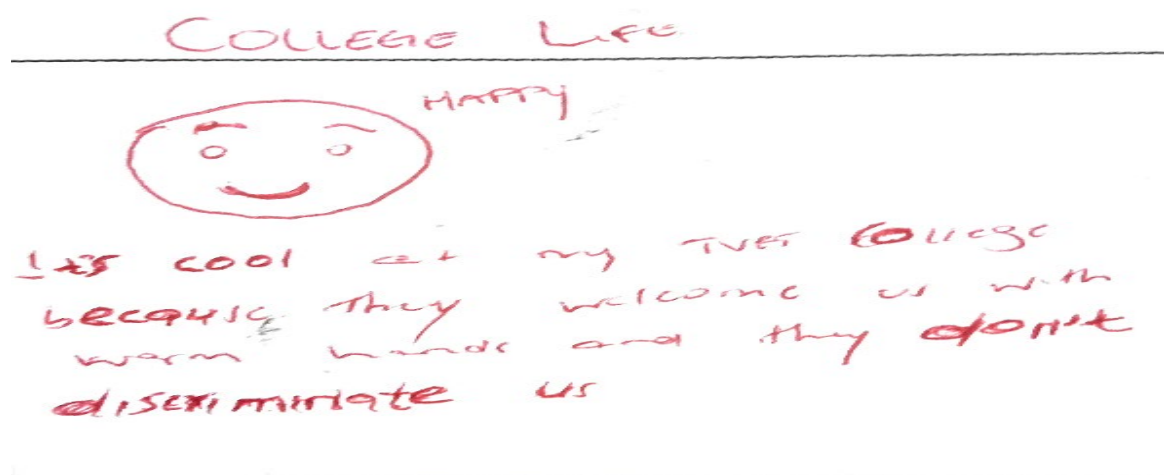 COLLEGE LIFE
HAPPY
It's cool at my TVET College
because they welcome us with
warm hands and they don't
discriminate us